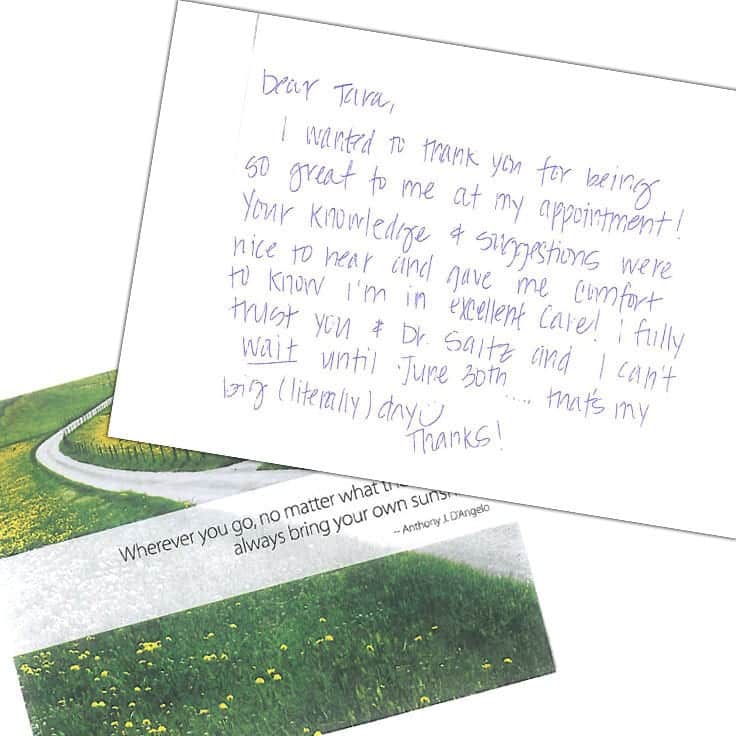 Dear Tara,
I wanted to thank you for being
so great to me at my appointment!
Your knowledge & suggestions were
nice to hear and gave me comfort
to know I'm in excellent care! I fully
trust you & Dr. Saltz and I can't
wait until June 30th ..... that's my
big (literally) day
Thanks!
Wherever you go, no matter what
always bring your own
– Anthony J. D'Angelo